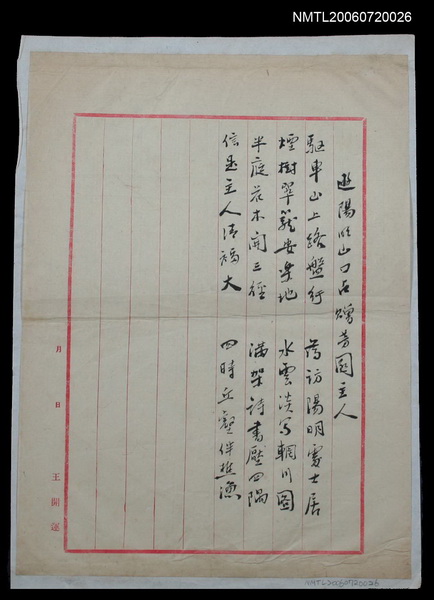 NMTL20060720026
遊陽明山口占贈芳園主人
驅車山上路盤行 蒋訪陽明處士居
煙樹翠籠安樂地 水雲淡寫輞川圖
半庭花木開三徑 滿架詩書壓四隅
信是主人清福大 四時丘壑伴樵漁
月 日 王開運
NMTL20060720026